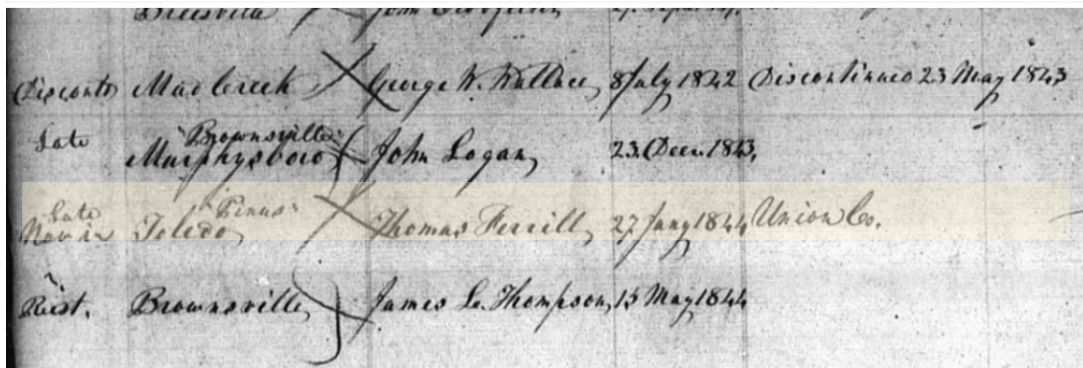 Discontd Mud Creek George W. Wallace 8 July 1842 Discontinued 23 May 1843
Late "Brownsville"
Murphysboro John Logan 23 Decr. 1843.
Late "Pinus"
Now in Toledo Thomas Ferrill 27 Jany 1844 Union Co.
Brownsville James L. Thompson 15 May 1844